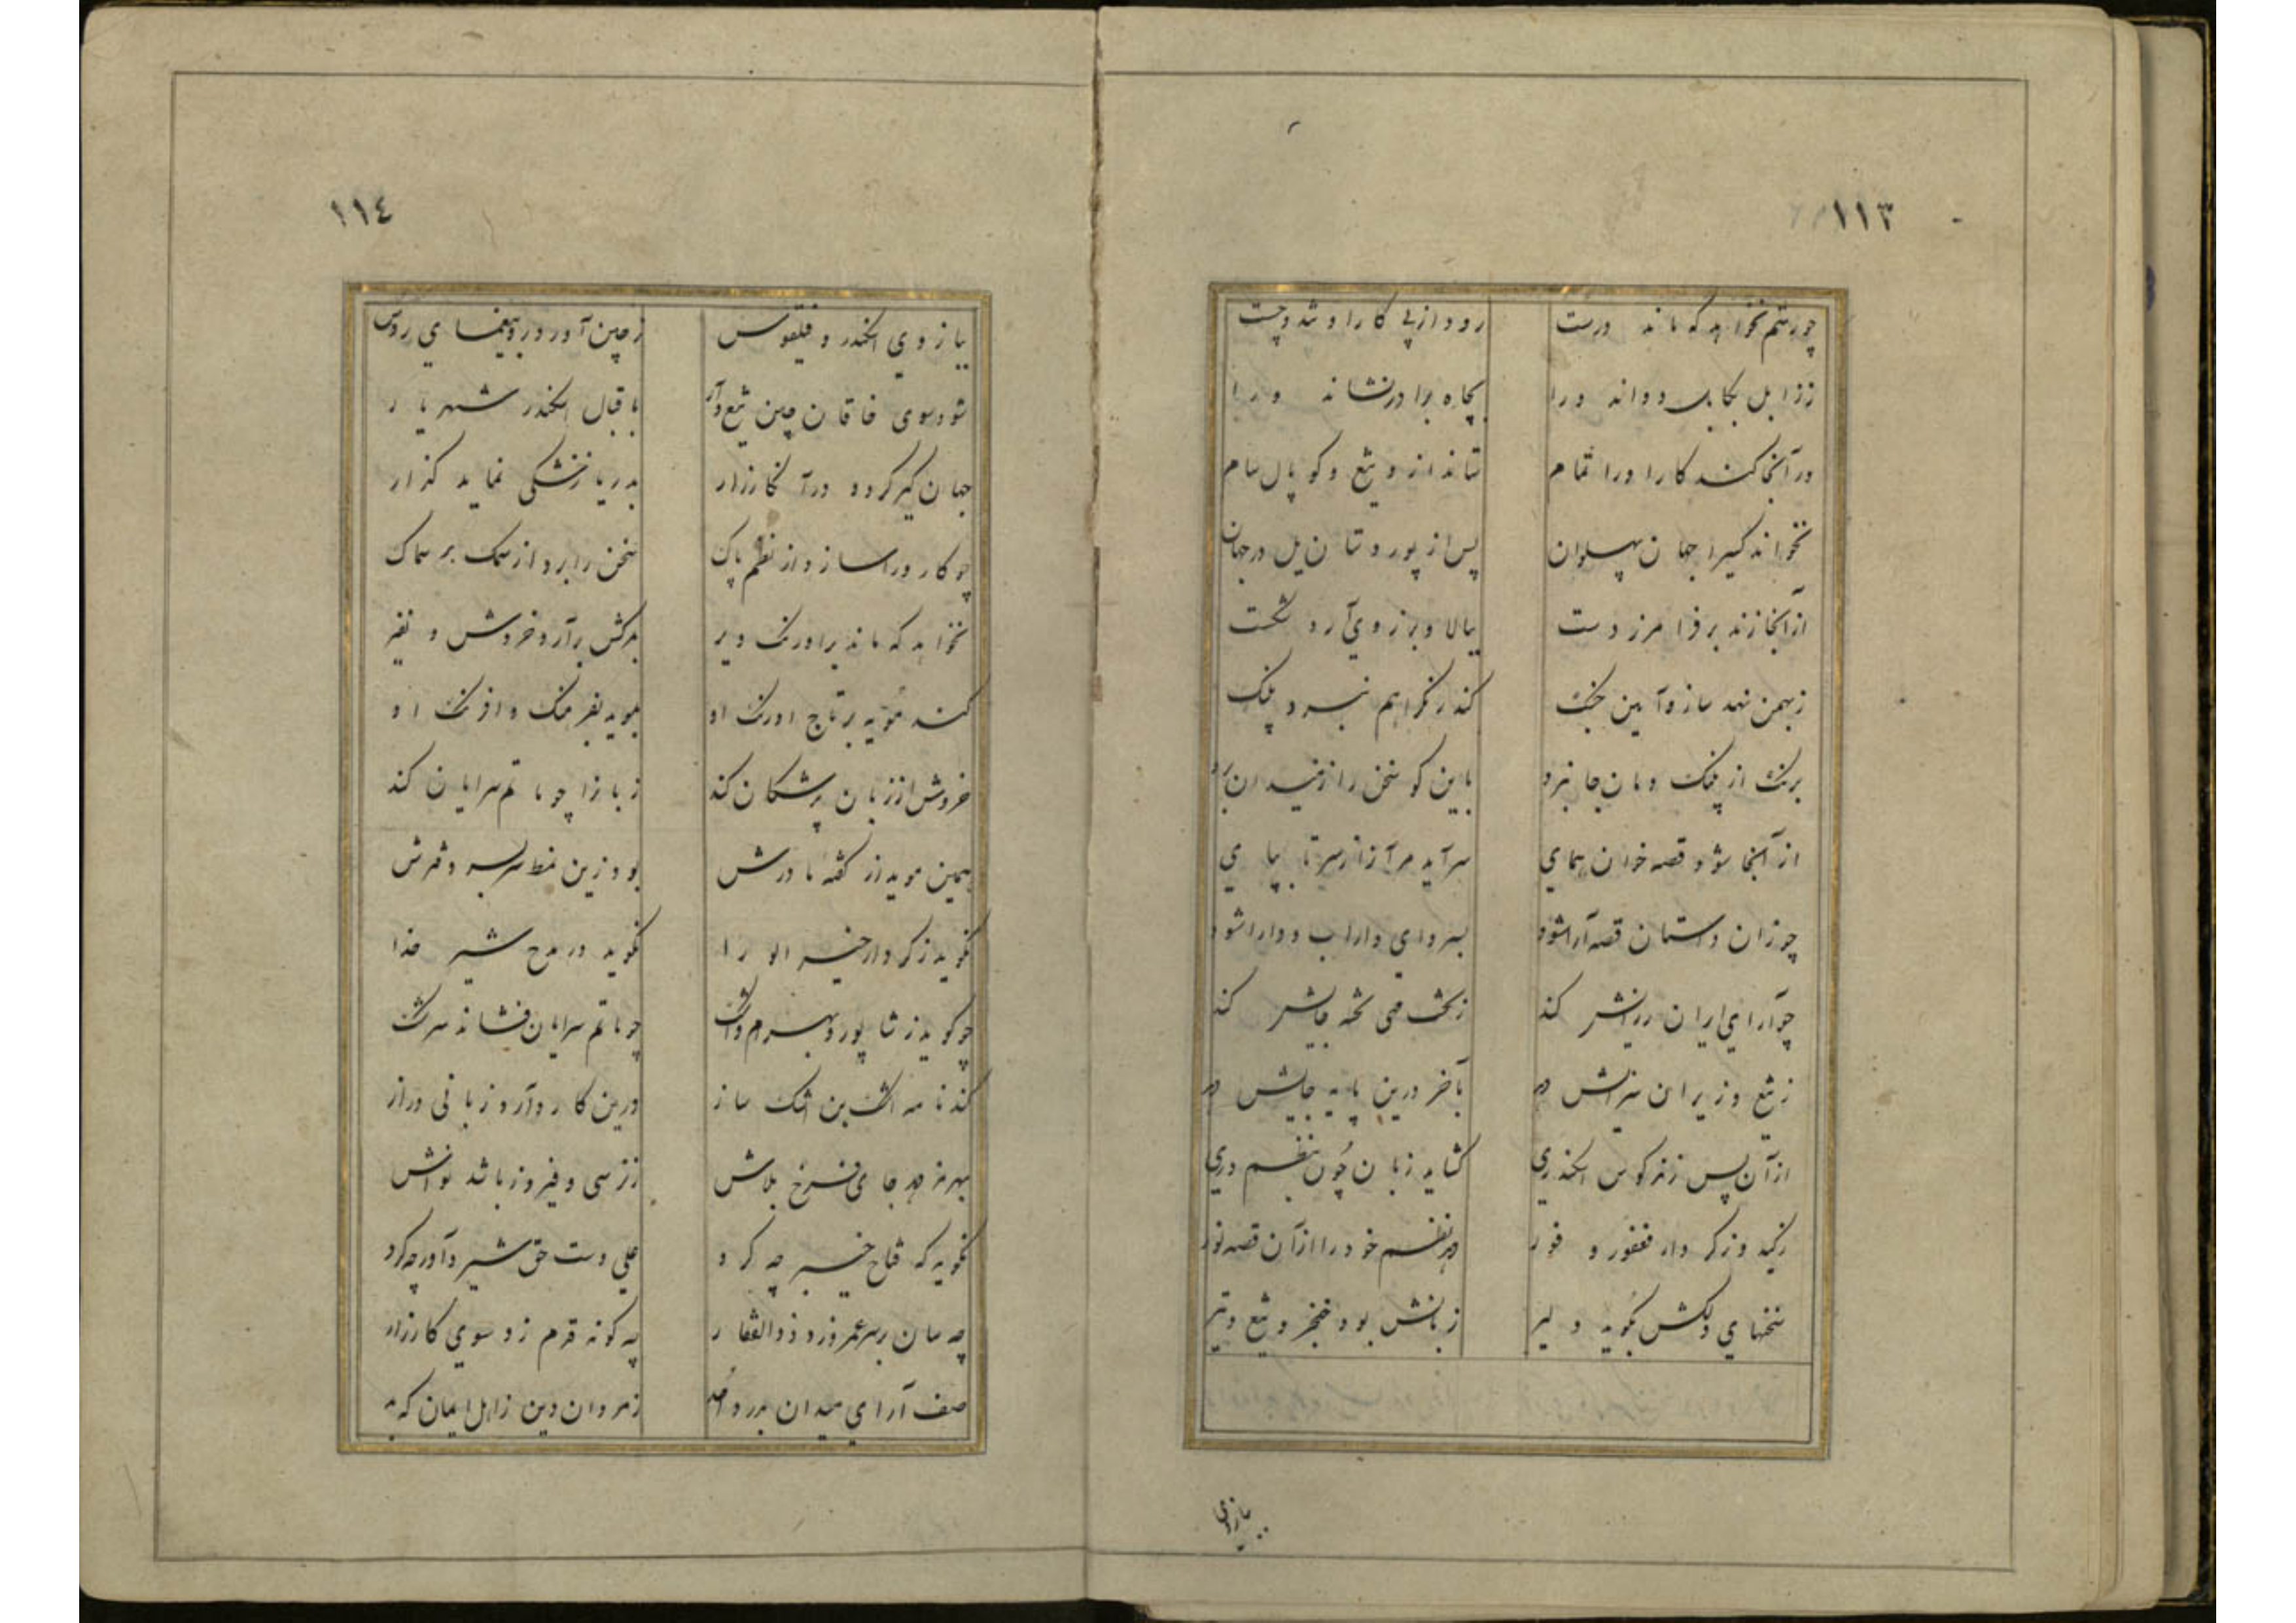 ١١٣
چو رستم نخواهد که ماند درست رود از پی کار او شد و چست
ز زابل بکابل دواند ورا بچاه برادر نشاند ورا
در آنجا کند کار او را تمام ستاند ازو تیغ و کوپال سام
نخواند کسیرا جهان پهلوان پس از پور دستان یل در جهان
از آنجا زند بر فرامرز دست ببالا و برزوی آرد شکست
ز بهمن نهد ساز و آیین جنک
برنک از پلنک دمان جا نبرد باین کو سخن را ز میدان برد
از آنجا شود قصه خوان همای سر آید مر آنرا ز سر تا بپای
چو زان داستان قصه آرا شود بسر وای داراب و دارا شود
چو آرای ایران زرانشر کند ز تخت می تخته جایش کند
ز تیغ وزیران سزایش دهد بآخر درین پایه جایش دهد
از آن پس زند کوس اسکندری کشاید زبان چون بنظم دری
ز کید و ز کردار فغفور و فور دهد نظم خود را از آن قصه نور
سخنهای دلکش بگوید دلیر زبانش بود خنجر و تیغ و تیر
ببازوی
١١٤
ببازوی اسکندر و فیلقوس ز چین آورد رو بیغمای روس
شود سوی خاقان چین تیغ دار باقبال اسکندر شهریار
جهان گیر گردد در آن کارزار بدریا ز خشکی نماید گذار
چو کار ورا سازد از نظم پاک سخن را برد از سمک بر سماک
نخواهد که ماند بر اورنک دیر بمرکش برآرد خروش و نفیر
کند مویه بر تاج و اورنک او بموید بفرهنک و افرنک او
خروش از زبان پزشکان کند زبانرا چو ماتم سرایان کند
همین موید از گفته مادرش بود زین نمط سر بسر دفترش
نگوید ز کردار خیر الورا نگوید در مدح شیر خدا
چو گوید ز شاپور و بهرام و اشک چو ماتم سرایان فشاند سرشک
کند نامه اشک بن اشک ساز درین کار دارد زبانی دراز
بهرمز دهد جا می فرخ بلاش ز نرسی و فیروز باشد نواش
نگوید که فتاح خیبر چه کرد علی دست حق شیر داور چه کرد
چه سان بر سر عمرو زد ذوالفقار چه گونه قدم زد سوی کارزار
صف آرای میدان بدر و احد ز مردان دین ز اهل ایمان که بد